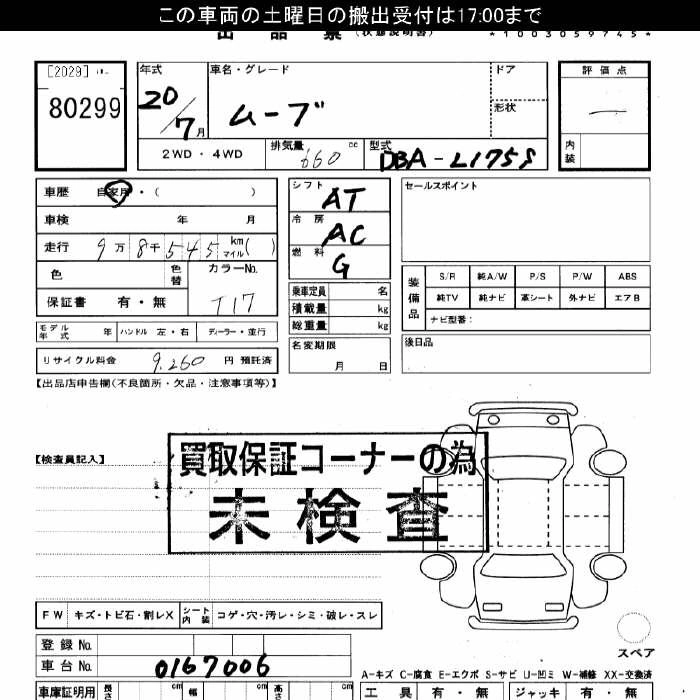 この車両の土曜日の搬出受付は17:00まで
出品票 (状態説明書) *1003059745*
[2029]
80299
年式 車名・グレード ドア 評価点
20/7月 ムーブ 形状 —
2WD・4WD 排気量 660 cc 型式 DBA-L175S 内装
車歴 自家用・( )
シフト AT
セールスポイント
車検 年 月
冷房 AC
走行 9万8千545 km マイル( )
燃料 G
色 色替 カラーNo. T17
保証書 有・無
乗車定員 名
積載量 kg
総重量 kg
装備品 S/R 純A/W P/S P/W ABS
純TV 純ナビ 革シート 外ナビ エアB
ナビ型番:
モデル年式 年 ハンドル 左・右 ディーラー・並行
名変期限 月 日
後日品
リサイクル料金 9,260 円 預託済
【出品店申告欄(不良箇所・欠品・注意事項等)】
【検査員記入】
買取保証コーナーの為
未検査
FW キズ・トビ石・割レX シート内装 コゲ・穴・汚レ・シミ・破レ・スレ
登録No.
車台No. 0167006
スペア
A-キズ C-腐食 E-エクボ S-サビ U-凹ミ W-補修 XX-交換済
車庫証明用 長さ cm 幅 cm 高さ cm 工具 有・無 ジャッキ 有・無